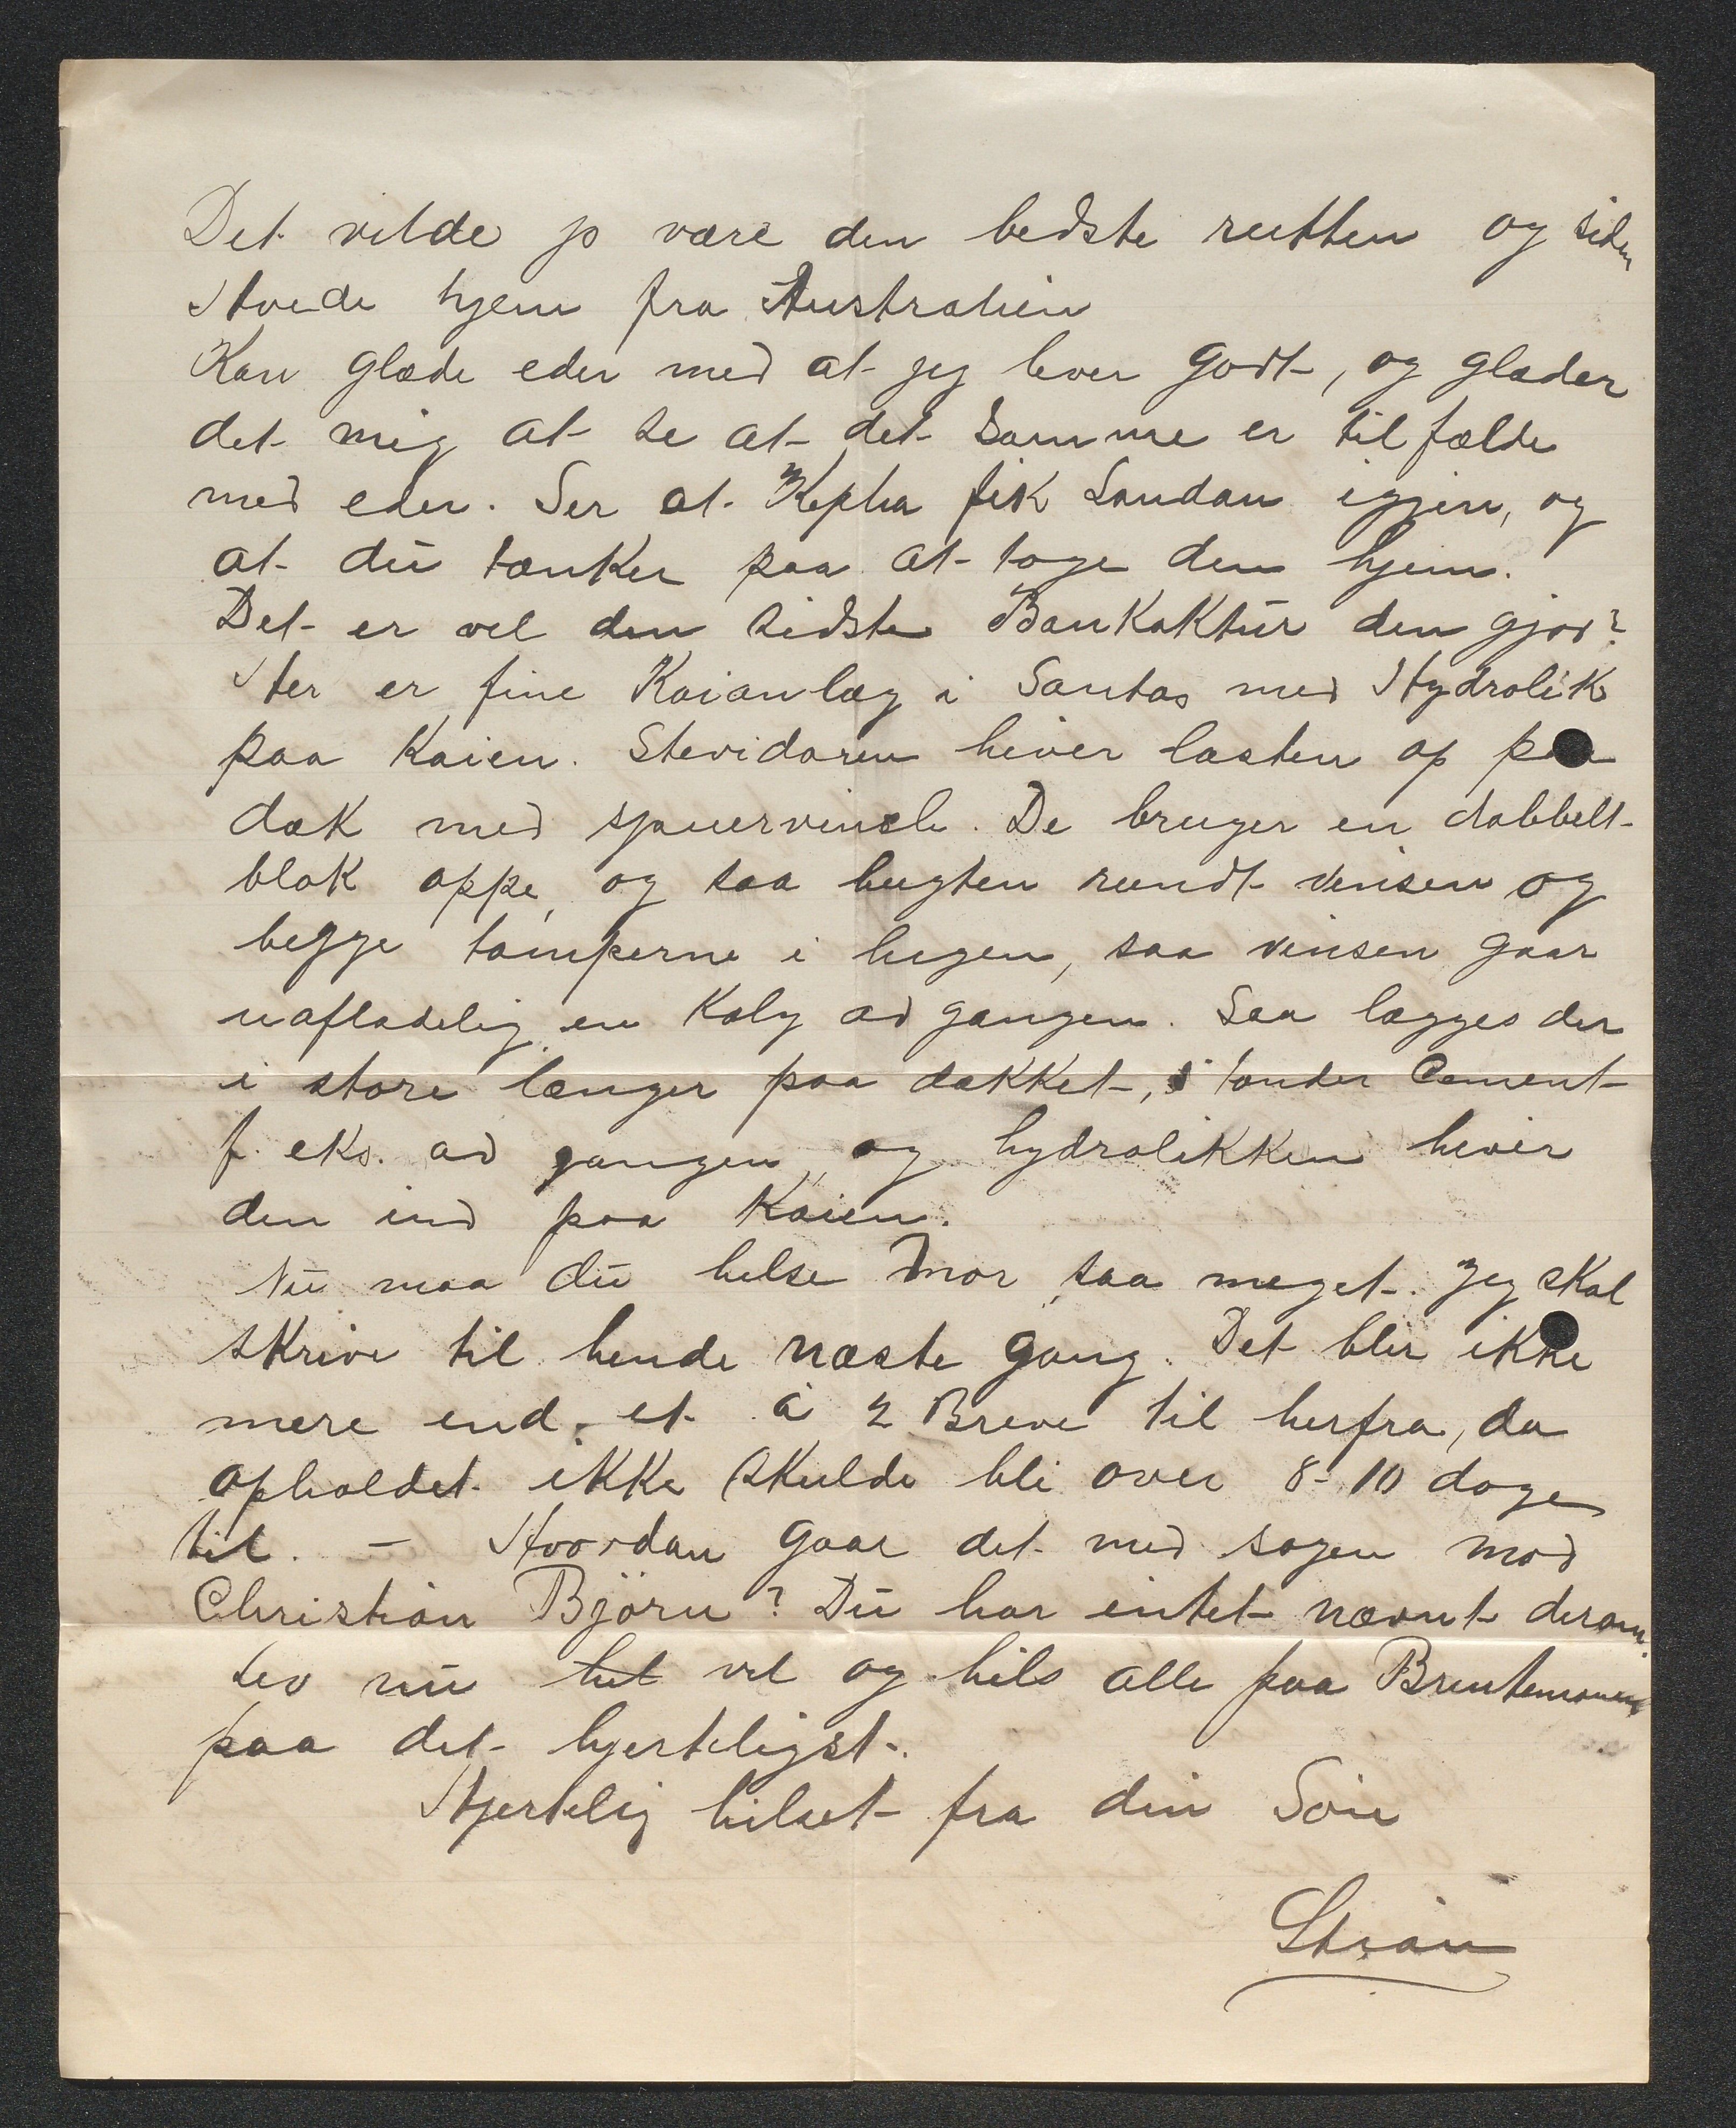 Det vilde jo være den bedste rutten og siden
Hvede hjem fra Australien
Kan glæde eder med at jeg lever godt, og glæder
det mig at se at det samme er tilfælde
med eder. Ser at Kepha fik Landan igjen, og
at du tænker paa at tage den hjem.
Det er vel den sidste Bankaktur den gjør?
Her er fine Kaianlæg i Santos med Hydrolik
paa Kaien. Stevidoren hiver lasten op paa
dæk med spuervinch. De bruger en dobbelt-
blok oppe, og saa bugten rundt vinsen og
begge tamperne i hugen, saa vinsen gaar
uafladelig en Koly ad gangen. Saa lægges der
i store længer paa dækket, tønder Cement
f. eks. ad gangen, og hydrolikken hiver
den ind paa Kaien.
Nu maa du helse Mor saa meget. Jeg skal
skrive til hende næste gang. Det blir ikke
mere end et à 2 Breve til herfra, da
opholdet ikke skulde bli over 8-10 dage
til. - Hvordan gaar det med sagen mod
Christian Björn? Du har intet nævnt derom.
Lev nu vel og hils alle paa
paa det hjerteligst.
Hjertelig hilset fra din Søn